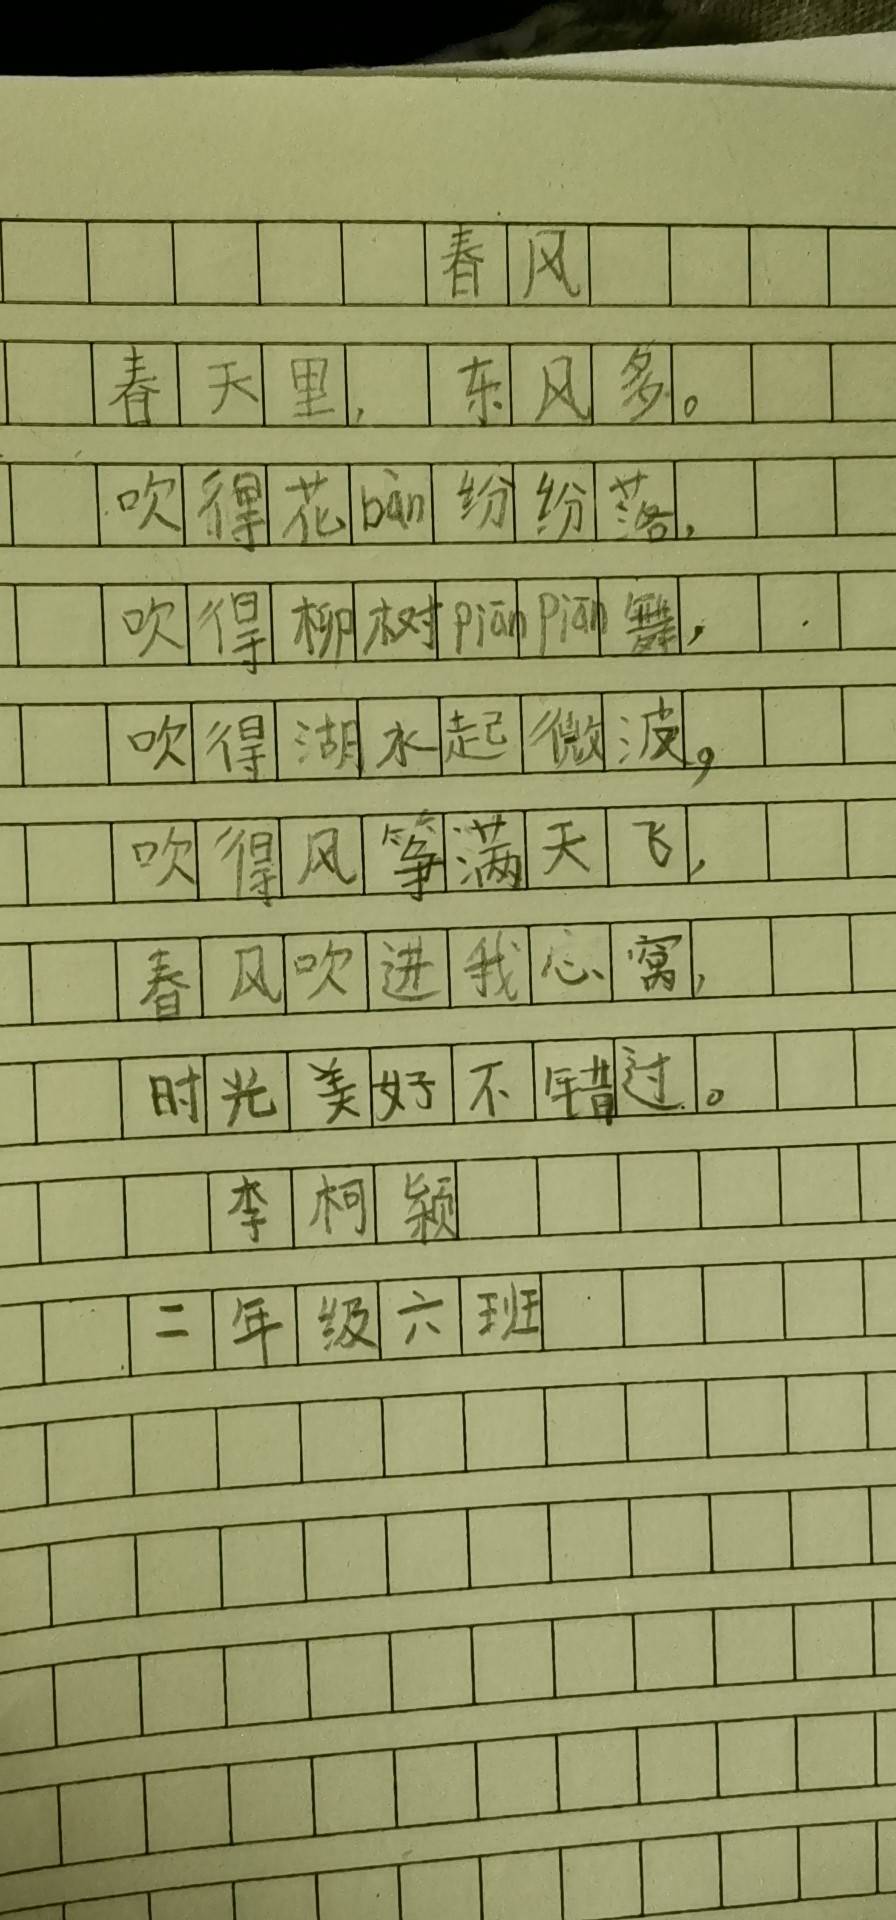 春风
春天里，东风多。
吹得花bàn纷纷落，
吹得柳树piānpiān舞，
吹得湖水起微波，
吹得风筝满天飞，
春风吹进我心窝，
时光美好不错过。
李柯颖
二年级六班